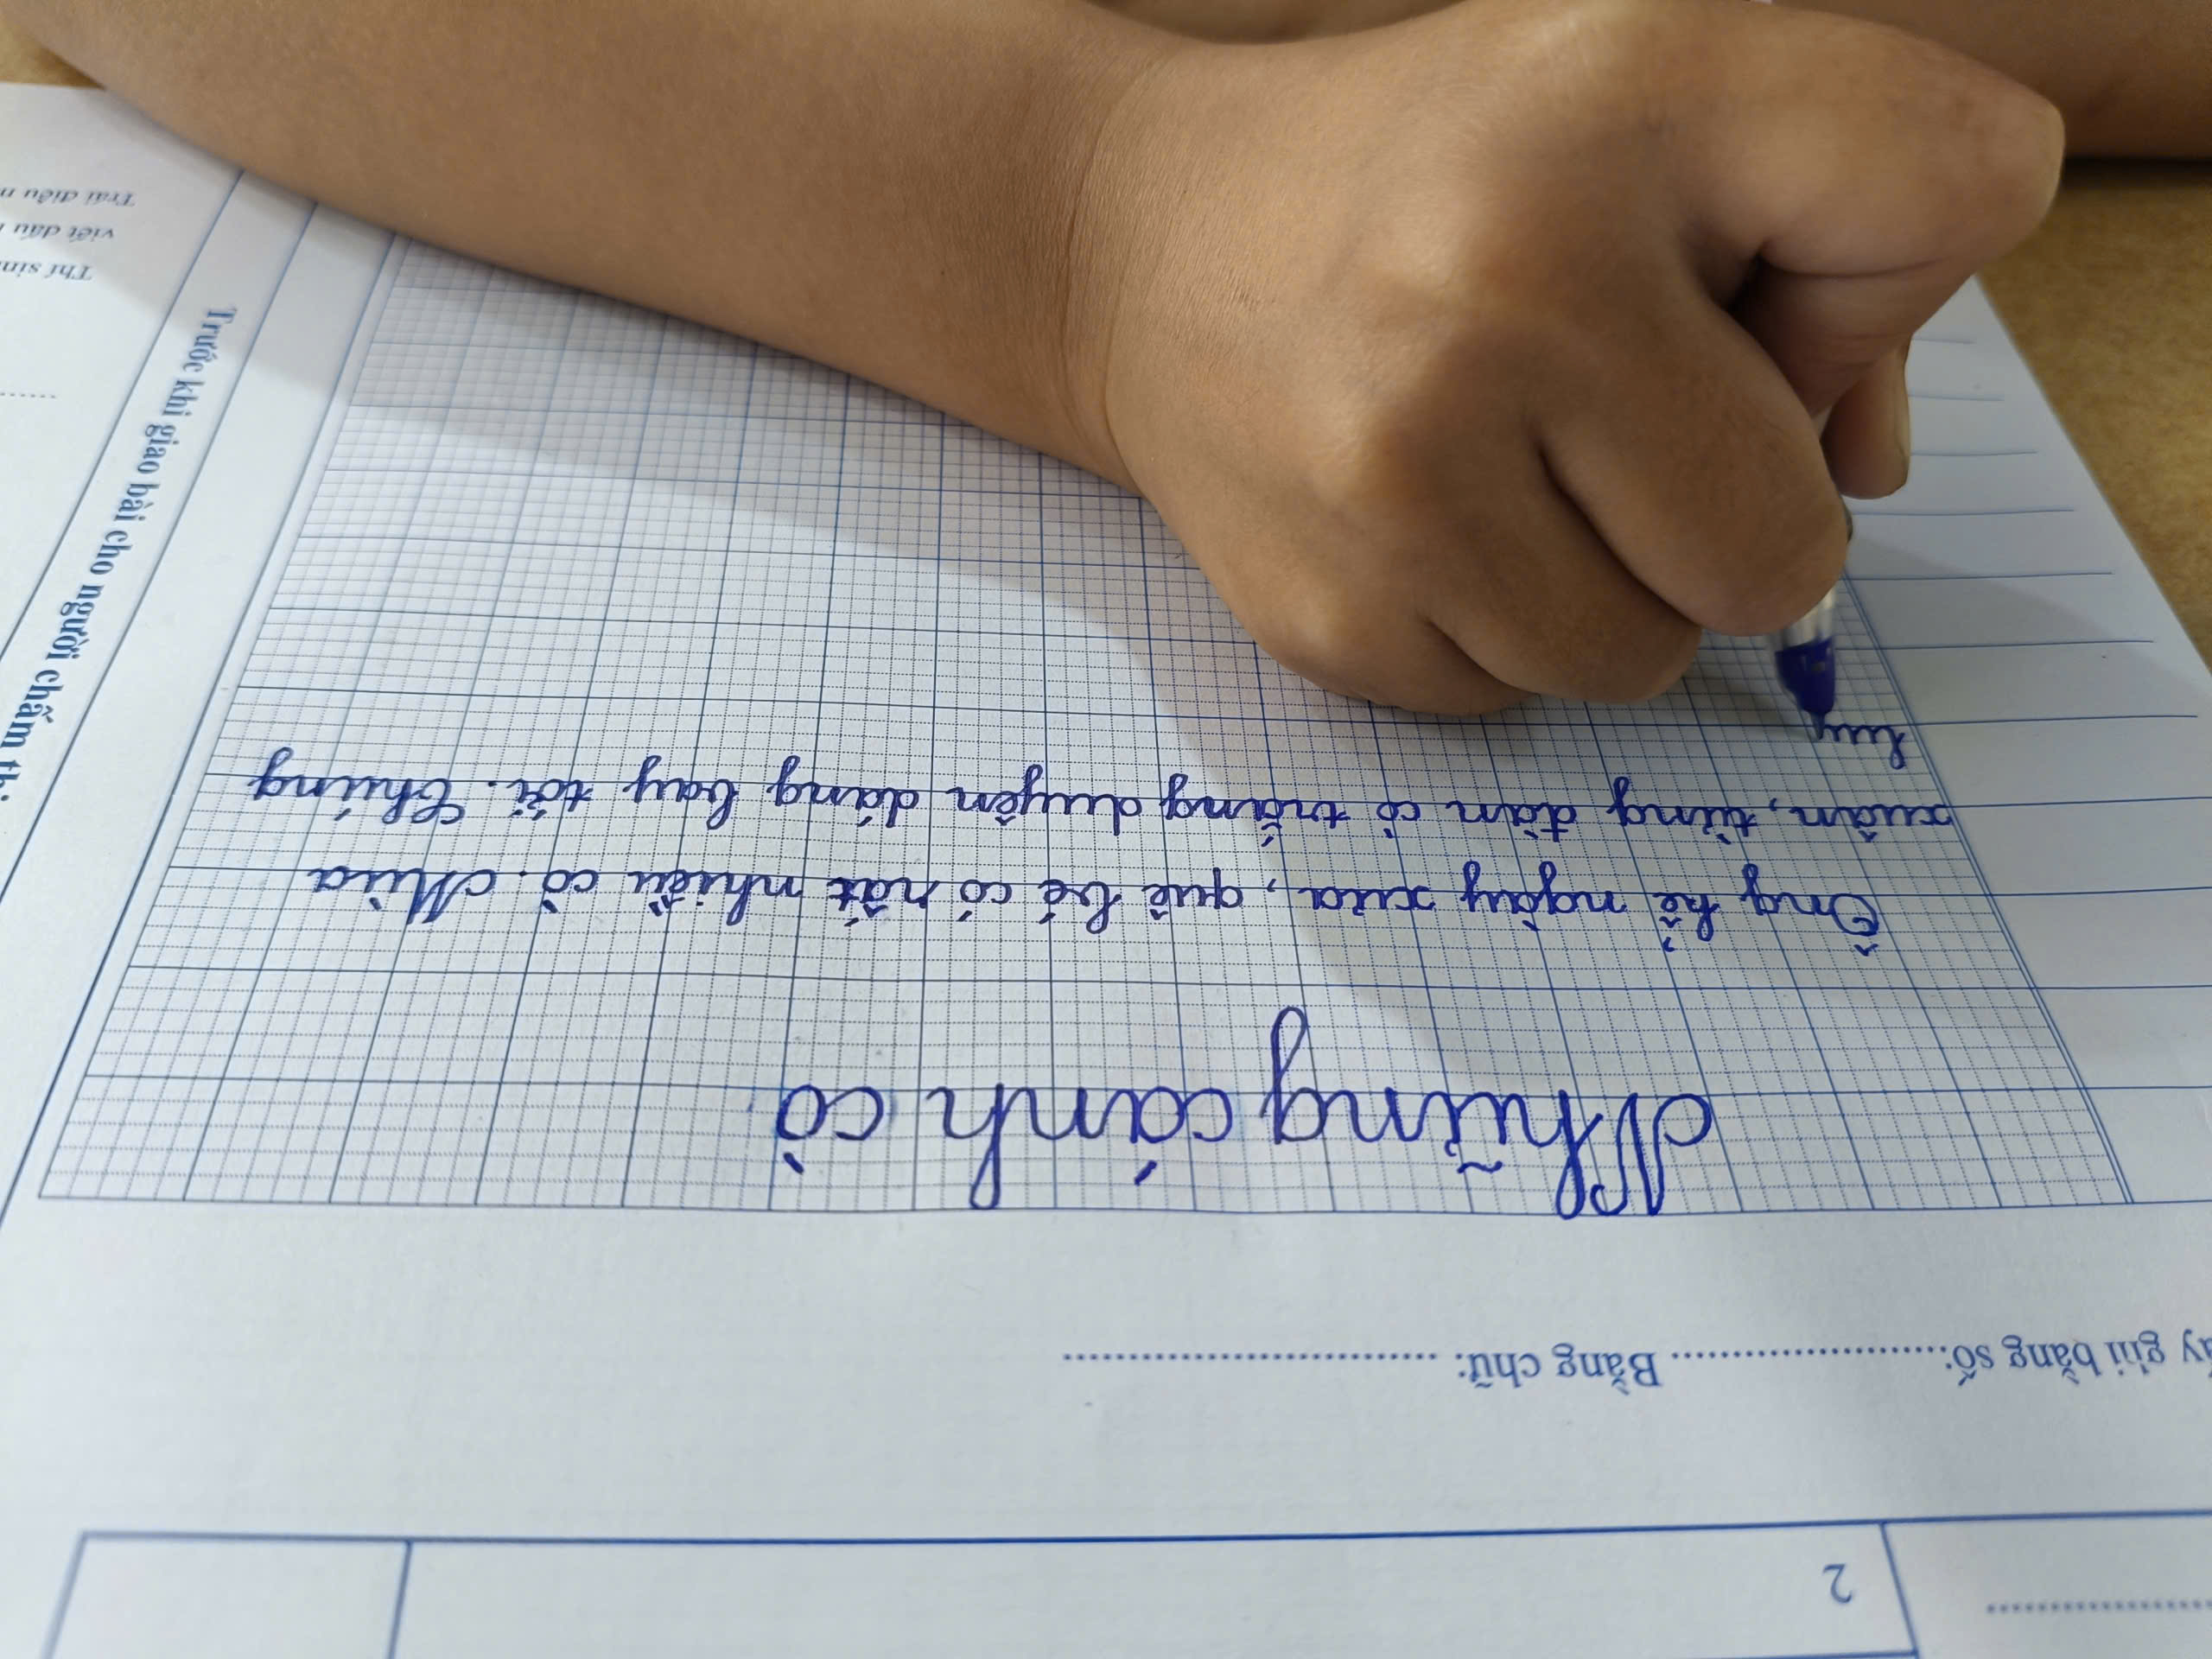 2
giải bằng số: Bằng chữ:
Những cánh cò
Ông kể ngày xưa, quê bé có rất nhiều cò. Mùa
xuân, từng đàn cò trắng duyên dáng bay tới. Chúng
Trước khi giao bài cho người chấm thi
Thí sin
viết dấu
Trái điều